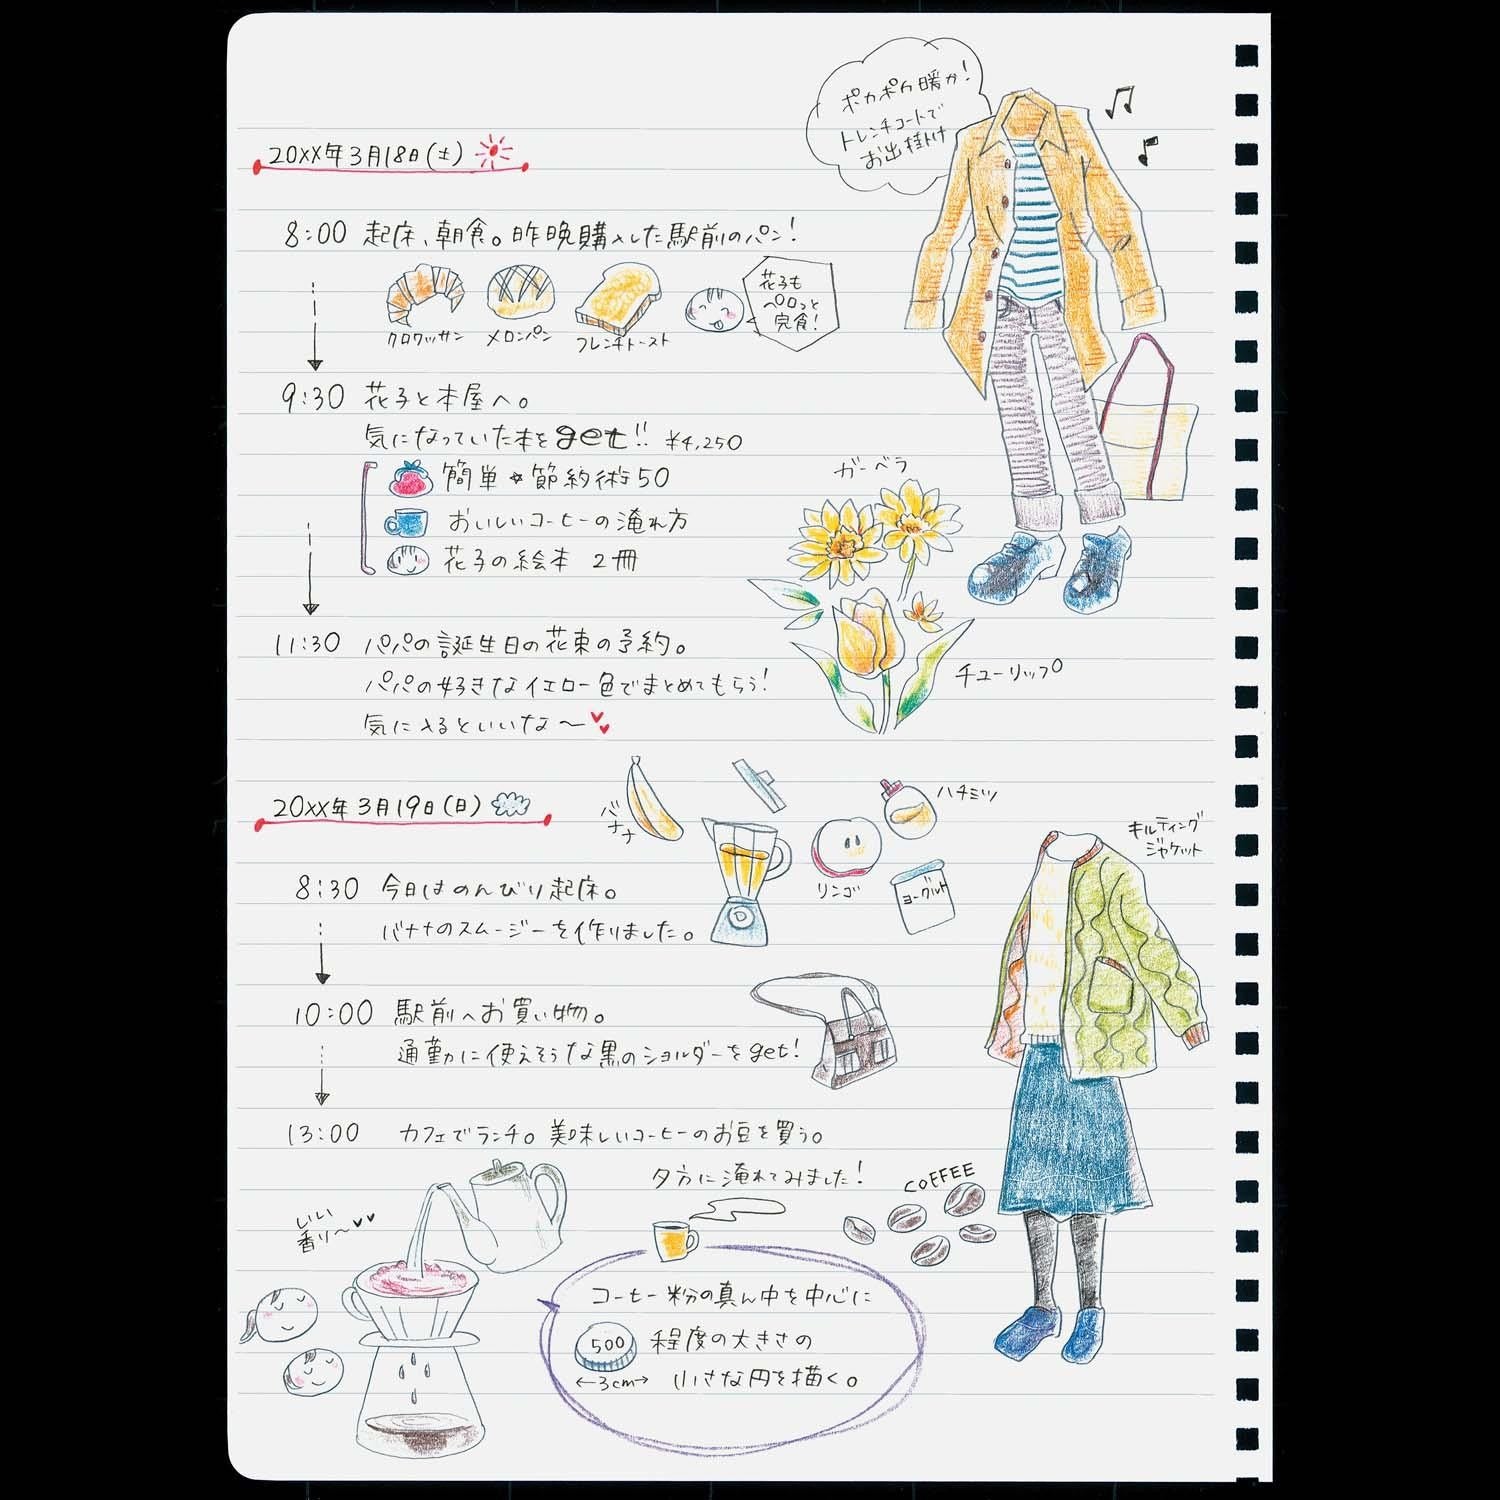 20XX年3月18日(土)
ポカポカ暖か!
トレンチコートで
お出掛け
8:00 起床、朝食。昨晩購入した駅前のパン!
クロワッサン
メロンパン
フレンチトースト
花子も
ペロッと
完食!
9:30 花子と本屋へ。
気になっていた本をget!! ¥4,250
簡単☆節約術50
おいしいコーヒーの淹れ方
花子の絵本 2冊
ガーベラ
チューリップ
11:30 パパの誕生日の花束の予約。
パパの好きなイエロー色でまとめてもらう!
気に入るといいな〜
20XX年3月19日(日)
バナナ
ハチミツ
リンゴ
ヨーグルト
キルティング
ジャケット
8:30 今日はのんびり起床。
バナナのスムージーを作りました。
10:00 駅前へお買い物。
通勤に使えそうな黒のショルダーをget!
13:00 カフェでランチ。美味しいコーヒーのお豆を買う。
夕方に淹れてみました!
COFFEE
いい
香り〜
コーヒー粉の真ん中を中心に
500 程度の大きさの
←3cm→ 小さな円を描く。